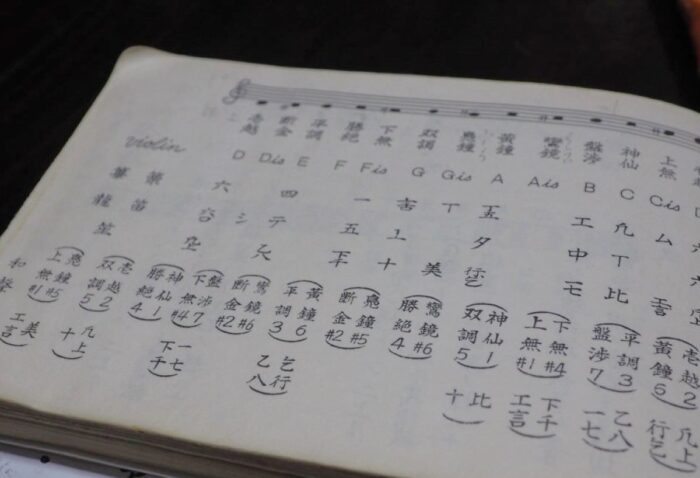 壱越 断金 平調 勝絶 下無 双調 鳧鐘 黄鐘 鸞鏡 盤渉 神仙 上無
violin D Dis E F Fis G Gis A Ais B C Cis D
篳篥 六 四 一 丁 五 工 ム 六
龍笛 シ 五 ⊥ 夕 中 丁
笙 十 美 比 言
和声
上無#1 鳧鐘#5
双調5 壱越2
勝絶4 神仙1
下無#4 盤渉7
断金#2 鸞鏡#6
平調3 黄鐘6
断金#2 鳧鐘#5
勝絶4 鸞鏡#6
双調5 神仙1
上無#1 下無#4
盤渉7 平調3
黄鐘6 壱越2
工言 美
十 凢上
下千 一七
乙八 乞行
十 比
工言 下千
一七 乙八
行乞 凢上